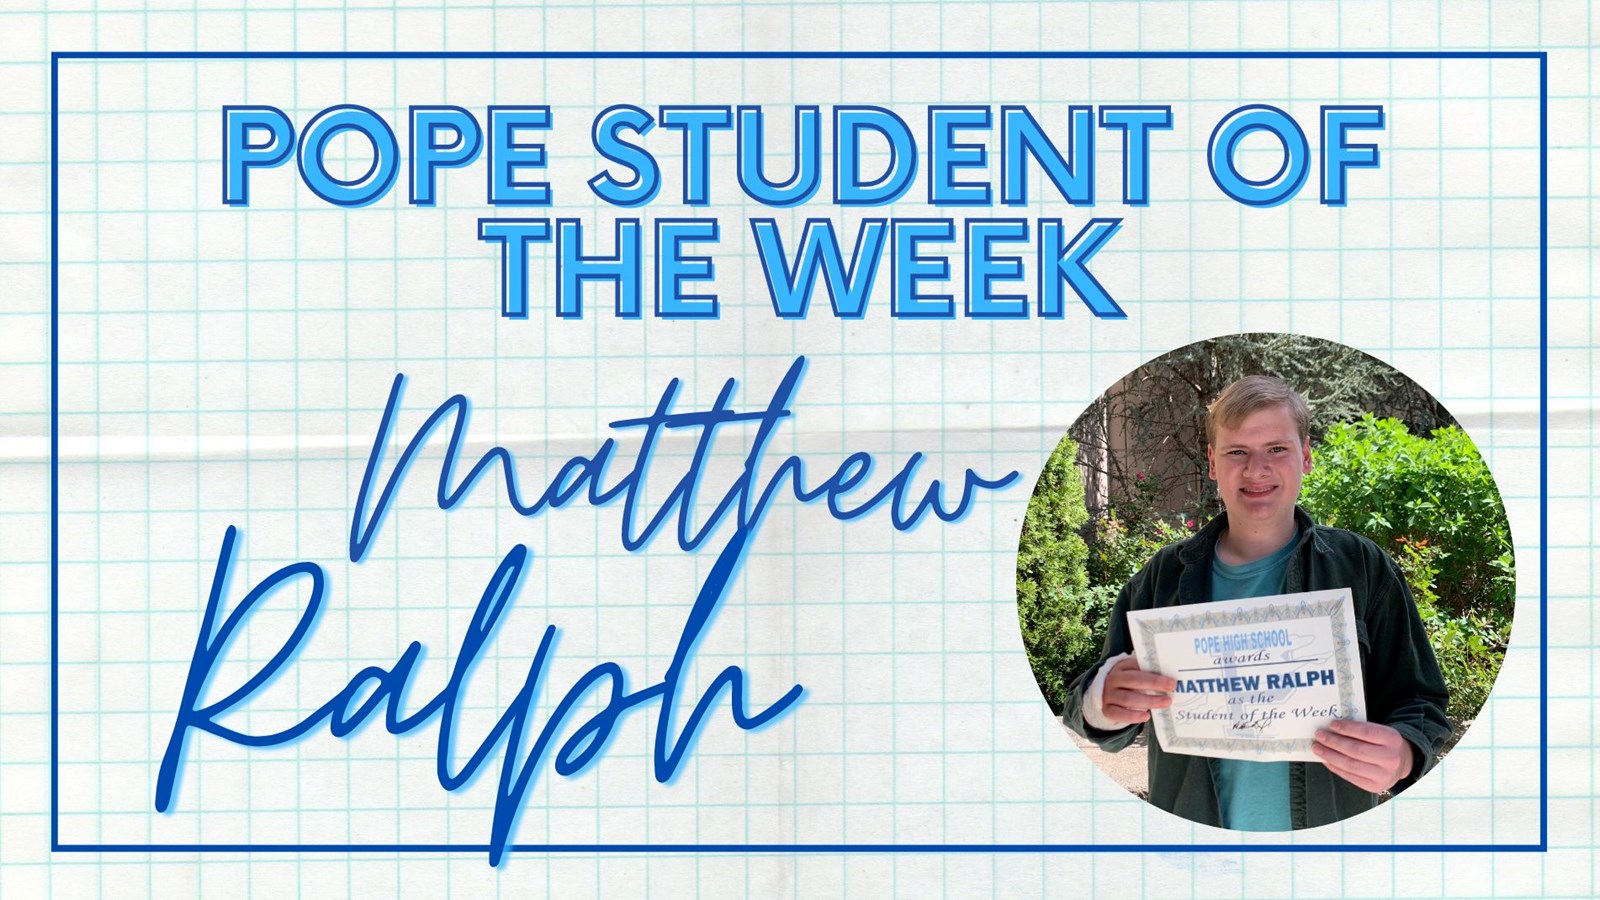 POPE STUDENT OF
THE WEEK
Matthew
Ralph
POPE HIGH SCHOOL
awards
MATTHEW RALPH
as the
Student of the Week